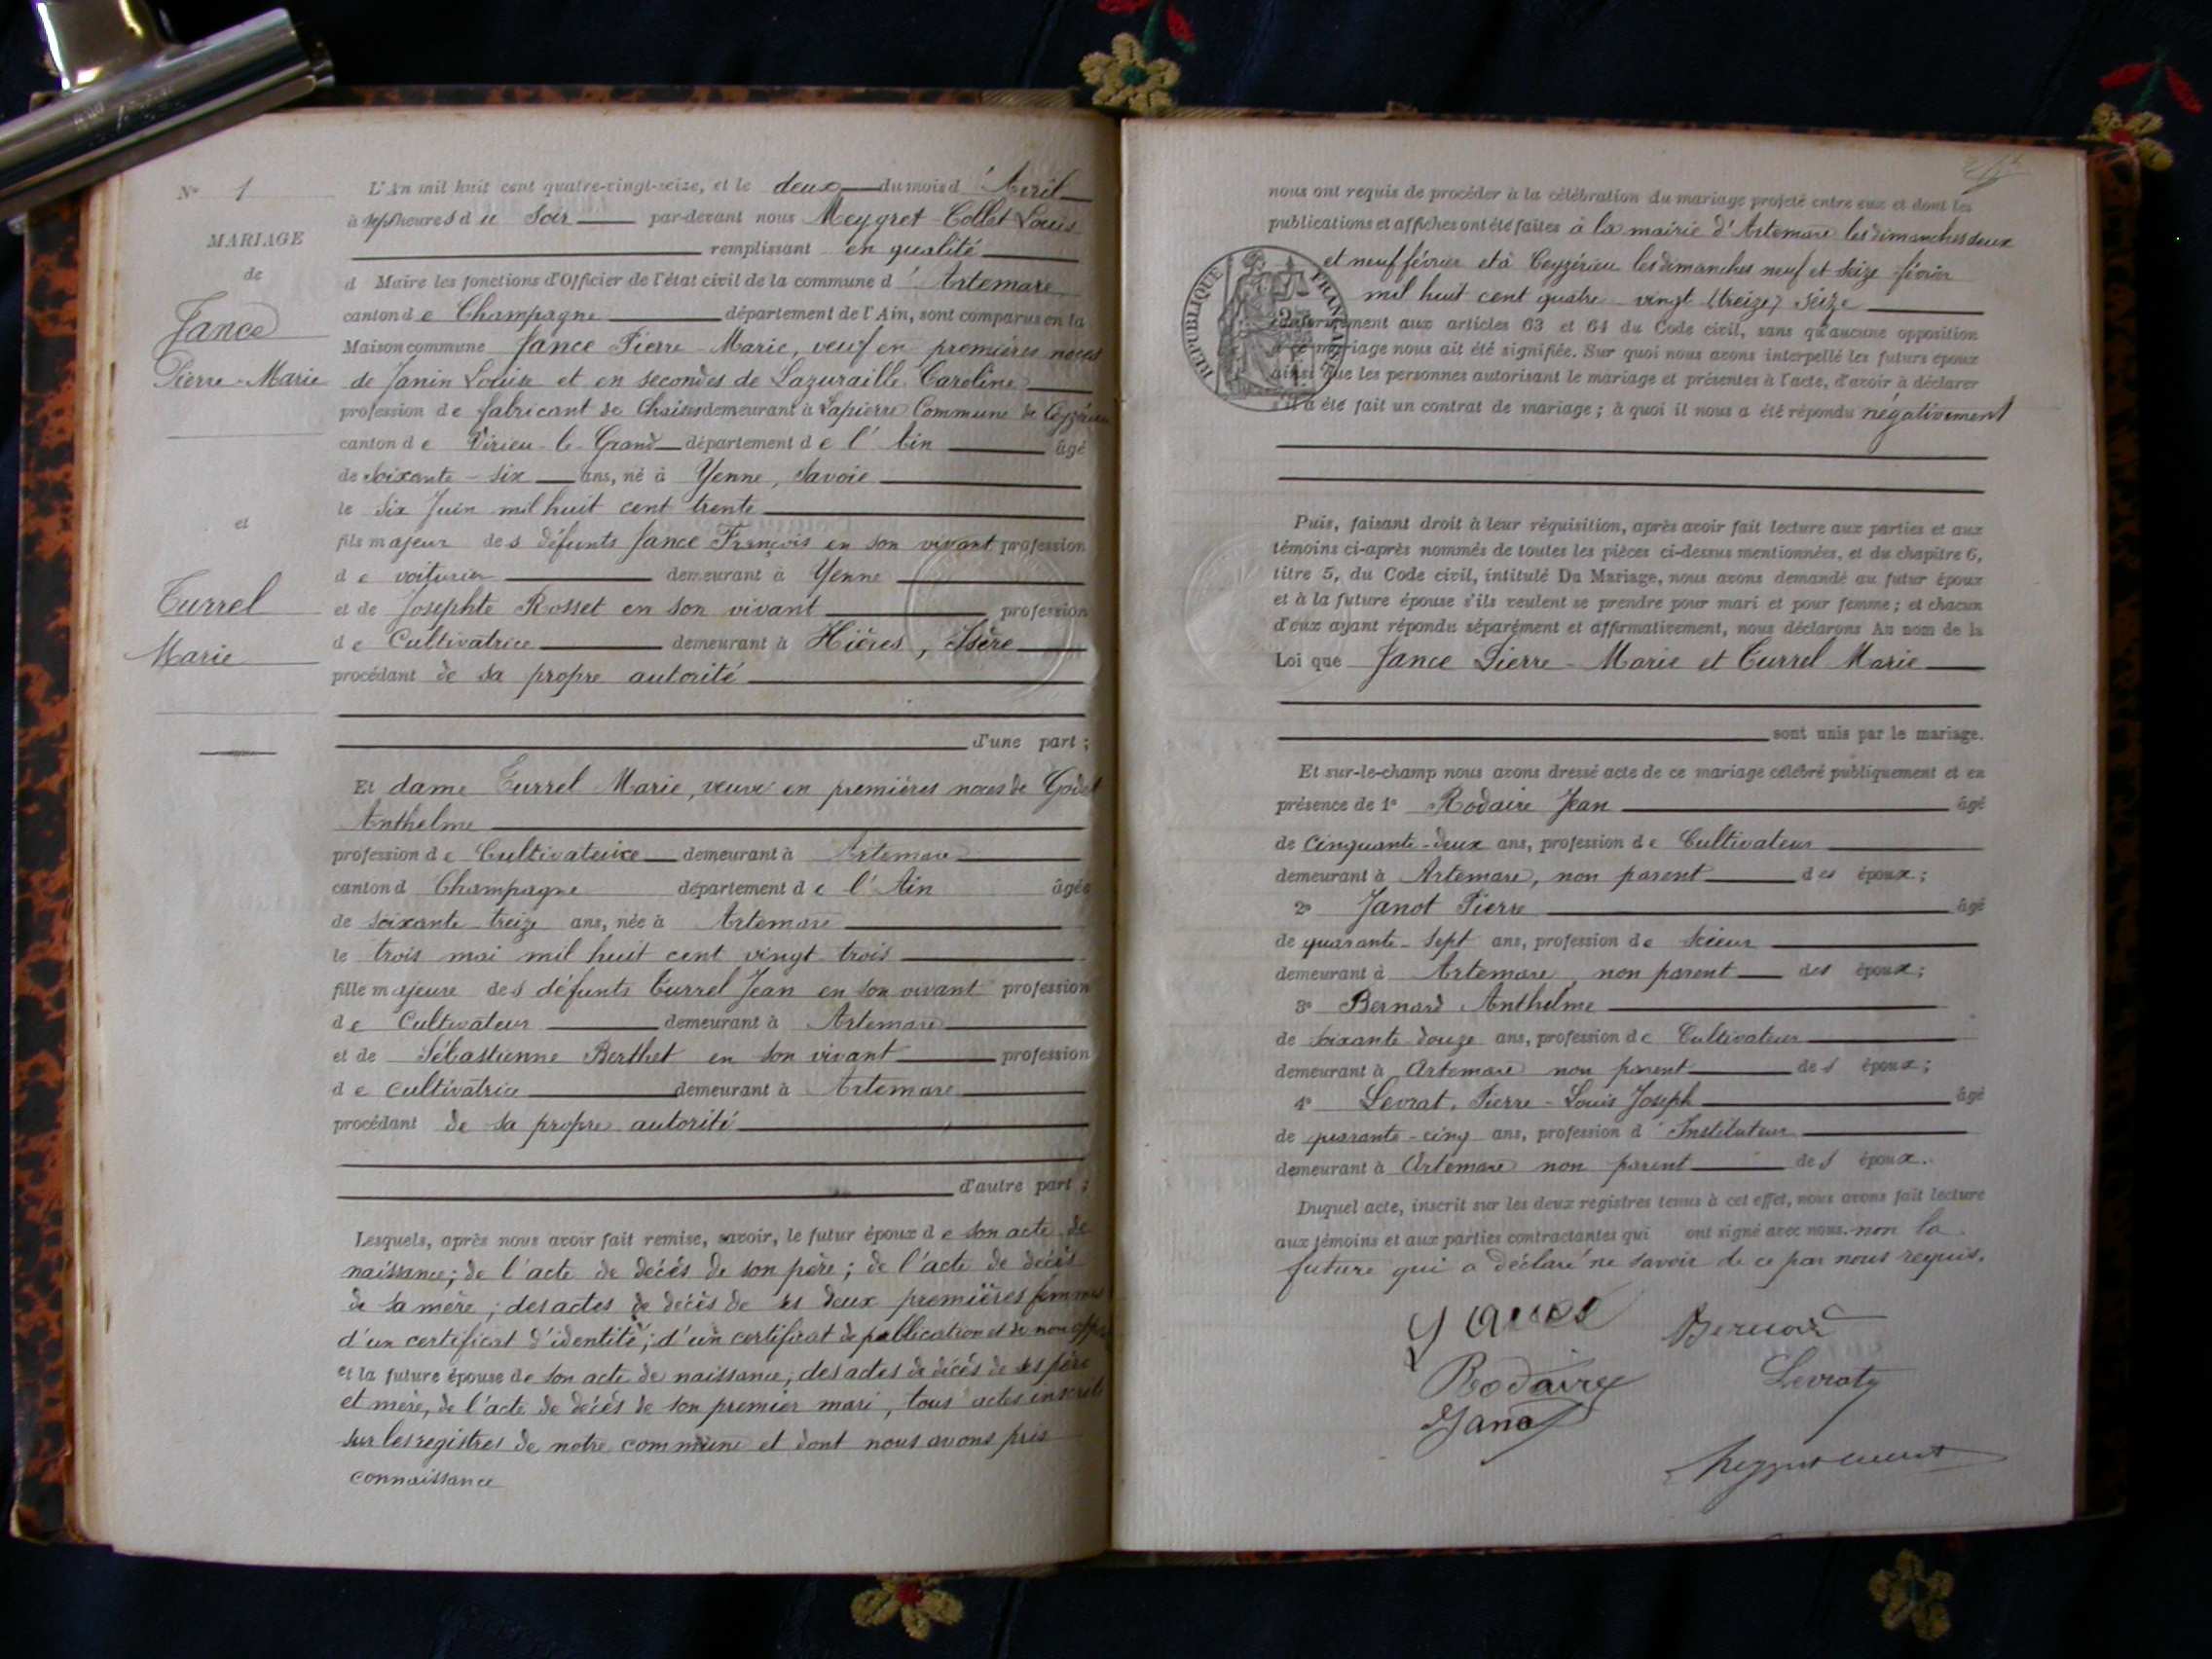 N° 1
MARIAGE
de
Jance
Pierre-Marie
et
Turrel
Marie
L'An mil huit cent quatre-vingt-seize, et le deux du mois d'Avril
à sept heures du Soir par-devant nous Meygret-Collet Louis
remplissant en qualité
d Maire les fonctions d'Officier de l'état civil de la commune d'Artemare
canton de Champagne département de l'Ain, sont comparus en la
Maison commune Jance Pierre-Marie, veuf en premières noces
de Janin Louise et en secondes de Lazuraille Caroline
profession de fabricant de Chaises demeurant à Lapierre Commune de Ceyzérieu
canton de Virieu-le-Grand département de l'Ain âgé
de soixante-six ans, né à Yenne, Savoie
le six Juin mil huit cent trente
fils majeur des défunts Jance François en son vivant profession
de voiturier demeurant à Yenne
et de Josephte Rosset en son vivant profession
de Cultivatrice demeurant à Hières, Isère
procédant de sa propre autorité
d'une part ;
Et dame Turrel Marie, veuve en premières noces de Godet
Anthelme
profession de Cultivateurice demeurant à Artemare
canton d Champagne département de l'Ain âgée
de soixante treize ans, née à Artemare
le trois mai mil huit cent vingt trois
fille majeure des défunts Turrel Jean en son vivant profession
de Cultivateur demeurant à Artemare
et de Sébastienne Berthet en son vivant profession
de cultivatrice demeurant à Artemare
procédant de sa propre autorité
d'autre part ;
Lesquels, après nous avoir fait remise, savoir, le futur époux de son acte de
naissance; de l'acte de décès de son père; de l'acte de décès
de sa mère; des actes de décès de ses deux premières femmes
d'un certificat d'identité; d'un certificat de publication et de non
et la future épouse de son acte de naissance, des actes de décès de ses père
et mère, de l'acte de décès de son premier mari, tous actes inscrits
sur les registres de notre commune et dont nous avons pris
connaissance
nous ont requis de procéder à la célébration du mariage projeté entre eux et dont les
publications et affiches ont été faites à la mairie d'Artemare les dimanches deux
et neuf février et à Ceyzérieu les dimanches neuf et seize février
mil huit cent quatre-vingt (treize) seize
RÉPUBLIQUE FRANÇAISE
conformément aux articles 63 et 64 du Code civil, sans qu'aucune opposition
à ce mariage nous ait été signifiée. Sur quoi nous avons interpellé les futurs époux
ainsi que les personnes autorisant le mariage et présentes à l'acte, d'avoir à déclarer
s'il a été fait un contrat de mariage ; à quoi il nous a été répondu négativement
Puis, faisant droit à leur réquisition, après avoir fait lecture aux parties et aux
témoins ci-après nommés de toutes les pièces ci-dessus mentionnées, et du chapitre 6,
titre 5, du Code civil, intitulé Du Mariage, nous avons demandé au futur époux
et à la future épouse s'ils veulent se prendre pour mari et pour femme ; et chacun
d'eux ayant répondu séparément et affirmativement, nous déclarons Au nom de la
Loi que Jance Pierre-Marie et Turrel Marie
sont unis par le mariage.
Et sur-le-champ nous avons dressé acte de ce mariage célébré publiquement et en
présence de 1° Rodaire Jean âgé
de Cinquante-deux ans, profession de Cultivateur
demeurant à Artemare, non parent des époux ;
2° Janot Pierre âgé
de quarante-sept ans, profession de scieur
demeurant à Artemare, non parent des époux ;
3° Bernard Anthelme
de soixante douze ans, profession de Cultivateur
demeurant à Artemare non parent des époux ;
4° Levrat, Pierre-Louis Joseph âgé
de quarante-cinq ans, profession d'Instituteur
demeurant à Artemare non parent des époux.
Duquel acte, inscrit sur les deux registres tenus à cet effet, nous avons fait lecture
aux témoins et aux parties contractantes qui ont signé avec nous. non la
future qui a déclaré ne savoir de ce par nous requis.
Rodaire
Levrat
Janot